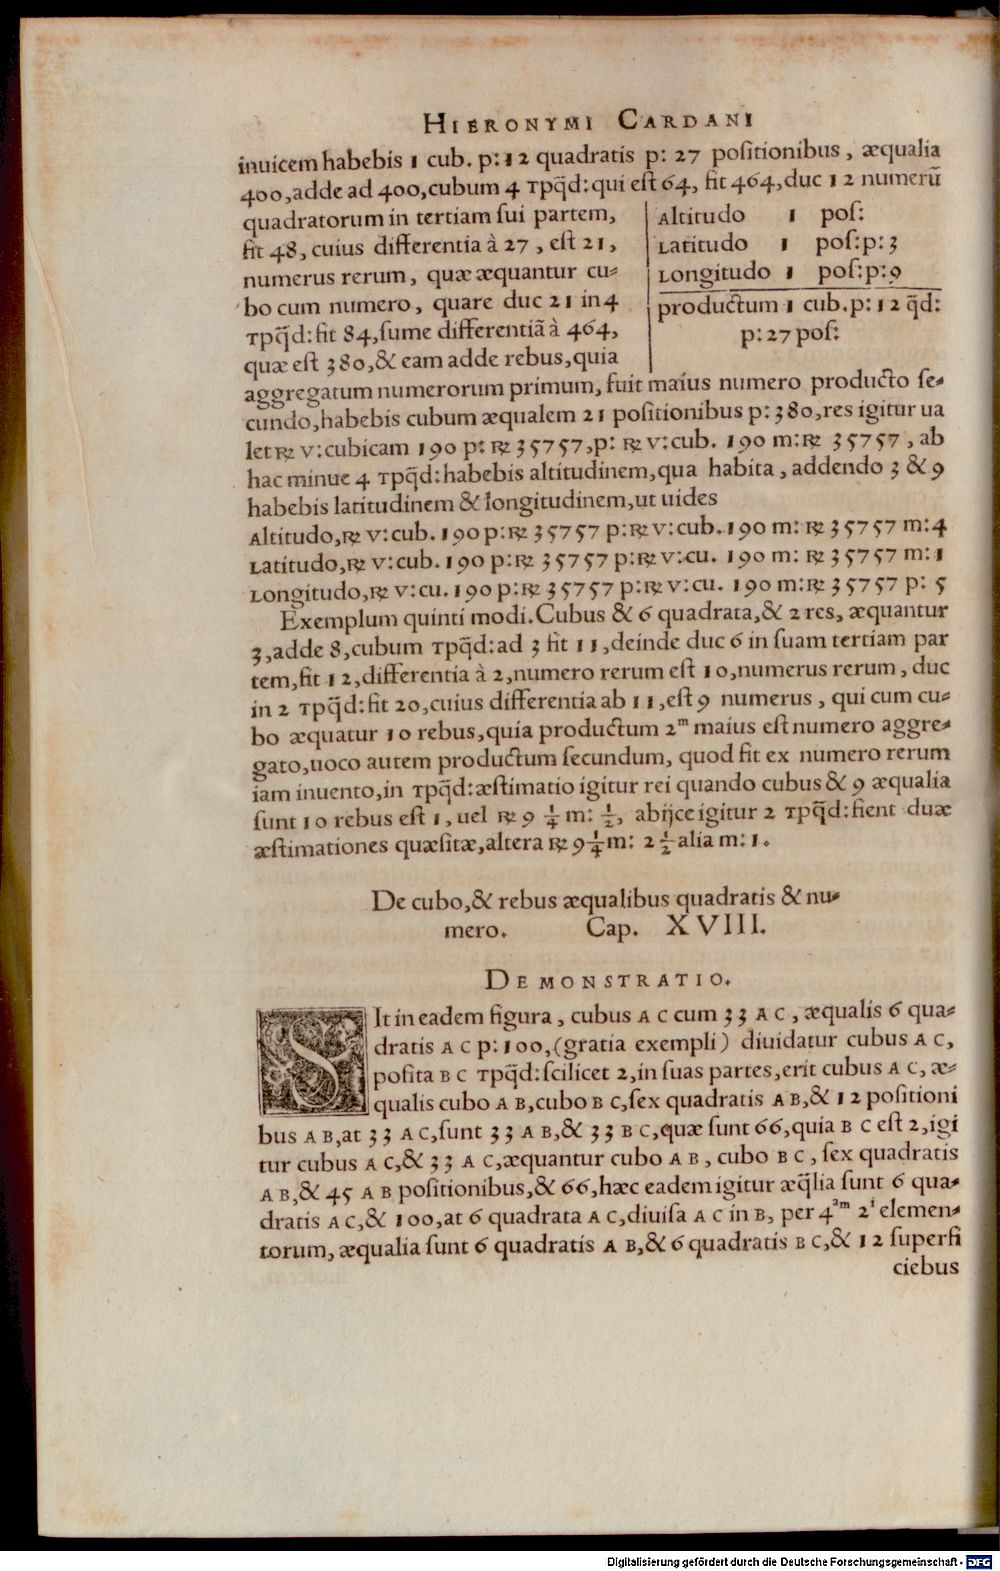 HIERONYMI CARDANI
inuicem habebis 1 cub. p: 12 quadratis p: 27 positionibus, æqualia
400, adde ad 400, cubum 4 Tpq̃d: qui est 64, fit 464, duc 12 numerũ
quadratorum in tertiam sui partem,
fit 48, cuius differentia à 27, est 21,
numerus rerum, quæ æquantur cu-
bo cum numero, quare duc 21 in 4
Tpq̃d: fit 84, sume differentiã à 464,
quæ est 380, & eam adde rebus, quia
Altitudo 1 pos:
Latitudo 1 pos: p: 3
Longitudo 1 pos: p: 9
productum 1 cub. p: 12 q̃d:
p: 27 pos:
aggregatum numerorum primum, fuit maius numero producto se-
cundo, habebis cubum æqualem 21 positionibus p: 380, res igitur ua
let ℞ v: cubicam 190 p: ℞ 35757, p: ℞ v: cub. 190 m: ℞ 35757, ab
hac minue 4 Tpq̃d: habebis altitudinem, qua habita, addendo 3 & 9
habebis latitudinem & longitudinem, ut uides
Altitudo, ℞ v: cub. 190 p: ℞ 35757 p: ℞ v: cub. 190 m: ℞ 35757 m: 4
Latitudo, ℞ v: cub. 190 p: ℞ 35757 p: ℞ v: cu. 190 m: ℞ 35757 m: 1
Longitudo, ℞ v: cu. 190 p: ℞ 35757 p: ℞ v: cu. 190 m: ℞ 35757 p: 5
Exemplum quinti modi. Cubus & 6 quadrata, & 2 res, æquantur
3, adde 8, cubum Tpq̃d: ad 3 fit 11, deinde duc 6 in suam tertiam par
tem, fit 12, differentia à 2, numero rerum est 10, numerus rerum, duc
in 2 Tpq̃d: fit 20, cuius differentia ab 11, est 9 numerus, qui cum cu-
bo æquatur 10 rebus, quia productum 2ᵐ maius est numero aggre-
gato, uoco autem productum secundum, quod fit ex numero rerum
iam inuento, in Tpq̃d: æstimatio igitur rei quando cubus & 9 æqualia
sunt 10 rebus est 1, uel ℞ 9 1/4 m: 1/2, abijce igitur 2 Tpq̃d: fient duæ
æstimationes quæsitæ, altera ℞ 9 1/4 m: 2 1/2 alia m: 1.
De cubo, & rebus æqualibus quadratis & nu-
mero. Cap. XVIII.
DEMONSTRATIO.
SIt in eadem figura, cubus A C cum 33 A C, æqualis 6 qua-
dratis A C p: 100, (gratia exempli) diuidatur cubus A C,
posita B C Tpq̃d: scilicet 2, in suas partes, erit cubus A C, æ-
qualis cubo A B, cubo B C, sex quadratis A B, & 12 positioni
bus A B, at 33 A C, sunt 33 A B, & 33 B C, quæ sunt 66, quia B C est 2, igi
tur cubus A C, & 33 A C, æquantur cubo A B, cubo B C, sex quadratis
A B, & 45 A B positionibus, & 66, hæc eadem igitur æq̃lia sunt 6 qua-
dratis A C, & 100, at 6 quadrata A C, diuisa A C in B, per 4ᵃᵐ 2ⁱ elemen-
torum, æqualia sunt 6 quadratis A B, & 6 quadratis B C, & 12 superfi
ciebus
Digitalisierung gefördert durch die Deutsche Forschungsgemeinschaft - DFG